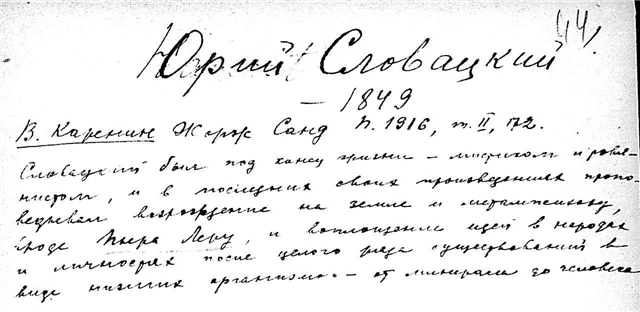 44.
Юрий Словацкий
— 1849
В. Каренин Жорж Санд П. 1916, т. II, 172.
Словацкий был под конец жизни — мистиком и
нистом, и в последних своих произведениях пропо-
ведывал возрождение на земле и метампсихозу,
вроде Пьера Леру, и воплощение идей в народах
и личностях после целого ряда существований в
виде низших организмов — от минерала до человека